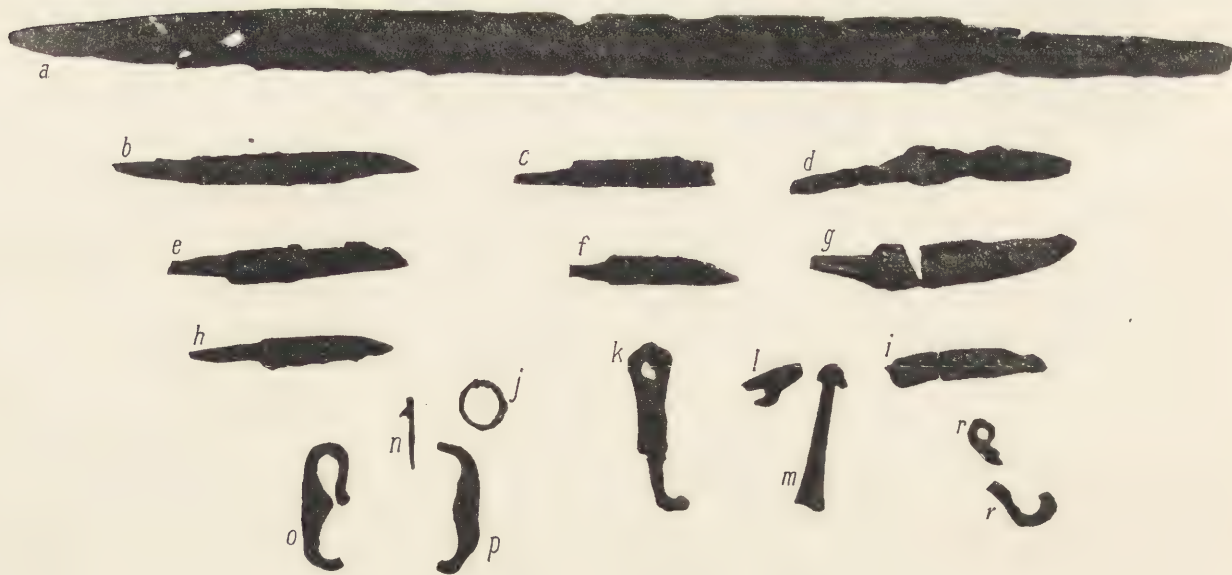 a
b c d
e f g
h k l i
j
n r
m
o p r